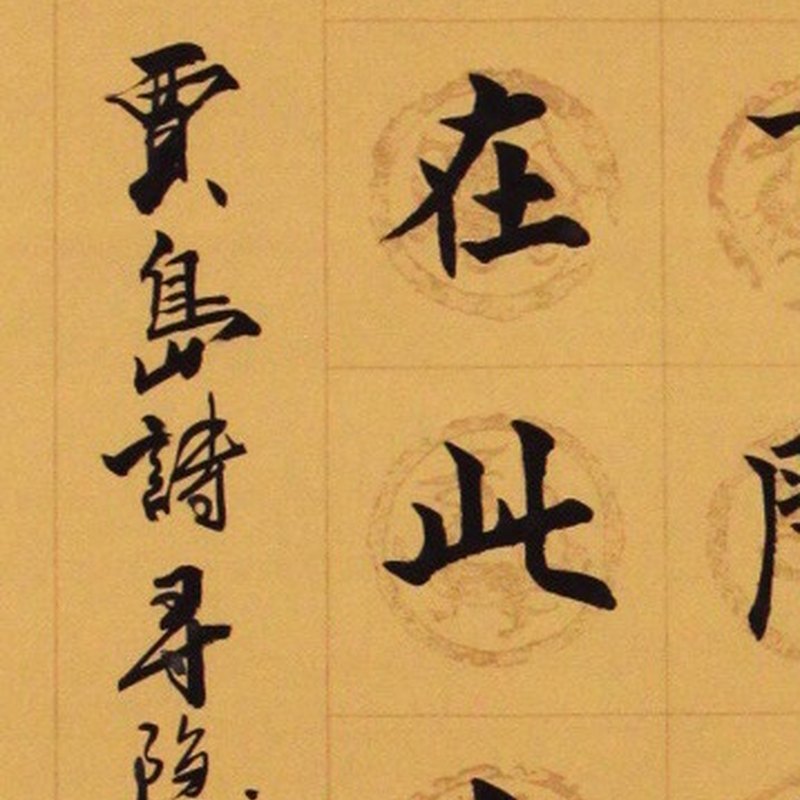 在此
賈島詩尋隐